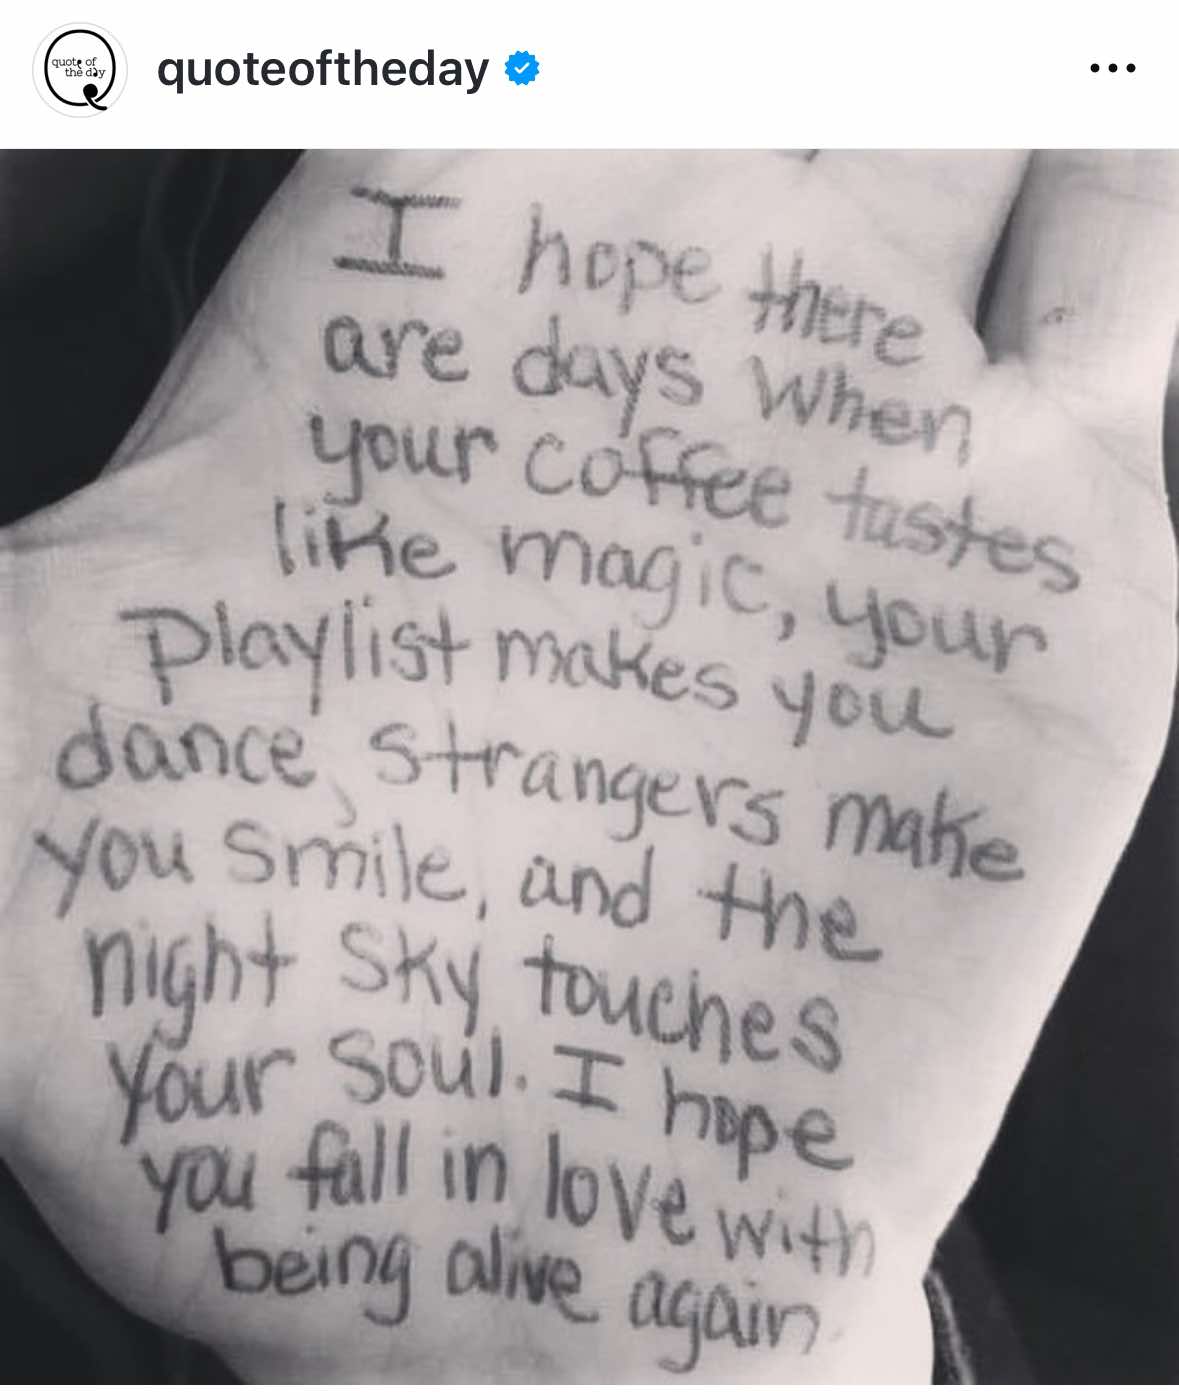 quote of
the day
quoteoftheday
I hope there
are days when
your coffee tastes
like magic, your
Playlist makes you
dance, strangers make
you smile, and the
night sky touches
your soul. I hope
you fall in love with
being alive again